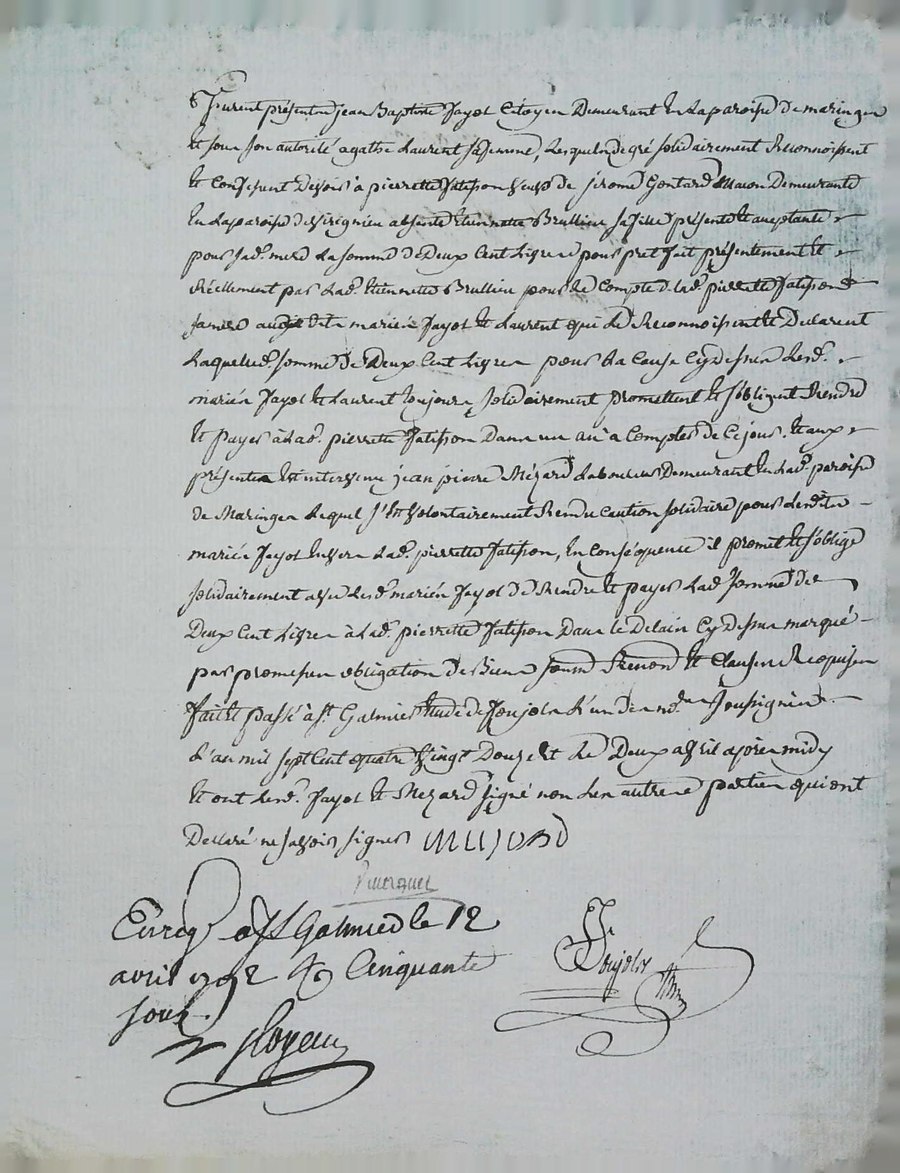 Furent présents jean Baptiste fayol Citoyen Demeurant En la paroisse de maringes
Et sous son autorité agathe Laurent sa femme, Lesquels de gré solidairement Reconnoissent
Et Confessent Devoir à pierrette fatisson veuve de jérome Gontard Macon Demeurante
En la paroisse de absente Etiennette Brullieu sa fille présente Et aceptante
pour sad. mere La somme de Deux Cent Livres pour pret fait présentement Et
Réellement par Lad. Etiennette Brullieu pour Le Compte de Lad. pierrette fatisson
mariés fayol Et Laurent qui Le Reconnoissent Et Declarent
Laquelle d. somme de Deux Cent Livres pour La Cause Cy dessus Lesd.
mariés fayol Et Laurent toujours solidairement promettent Et s'obligent Rendre
Et payer à Lad. pierrette fatisson Dans un an à Compter de Ce jour. Et aux
présentes Est intervenu jean pierre Mézard Laboureur Demeurant En Lad. paroisse
de Maringes Lequel s'Est volontairement Rendu Caution solidaire pour Lesdits
mariés fayol Envers Lad. pierrette fatisson, En Conséquence il promet Et s'oblige
solidairement avec Lesd. mariés fayol De Rendre Et payer Lad. somme de
Deux Cent Livres à Lad. pierrette fatisson Dans le Delain Cy Dessus marqué
par promesses obligation de Biens soumd. Renond. Et Clauses Requises
fait Et passé à St. Galmier Etude de Poujols L'un des nd.res soussignés
L'an mil sept Cent quatre vingt Douze Et Le Deux avril après midy
Et ont Lesd. fayol Et Mezard signé non Les autres parties qui ont
Declaré ne savoir signer
Enregé à St Galmier le 12
avril 1792 Rç Cinquante
sous.
Poujols